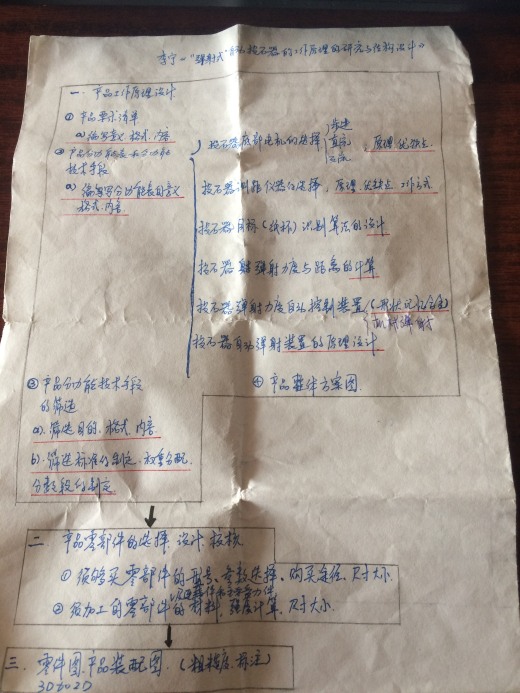 李宁-“弹射式”自动投石器的工作原理的研究与结构设计》
一、产品工作原理设计
① 产品要求清单
a) 编写意义、格式、内容
② 产品分功能表和分功能
技术手段
a) 编写分功能表目意义
格式、内容
投石器底部电机的选择
步进
直流
交流
原理优缺点
投石器测距仪器的选择,原理、优缺点、工作方式
投石器目标(纸杯)识别算法的设计
投石器弹射力度与距离的计算
投石器弹射力度自动控制装置
(形状记忆合金)
机械弹射
投石器自动弹射装置的原理设计
③ 产品分功能技术手段
的筛选
a). 筛选目的、格式、内容
b). 筛选标准的制定、权重分配
分数段的制定
④ 产品整体方案图
二、产品零部件的选择、设计、校核
① 须购买零部件的型号、参数选择、购买途径、尺寸大小.
② 须加工的零部件的材料,强度计算,尺寸大小.
三、零件图、产品装配图、(粗糙度、标注)
3D to 2D